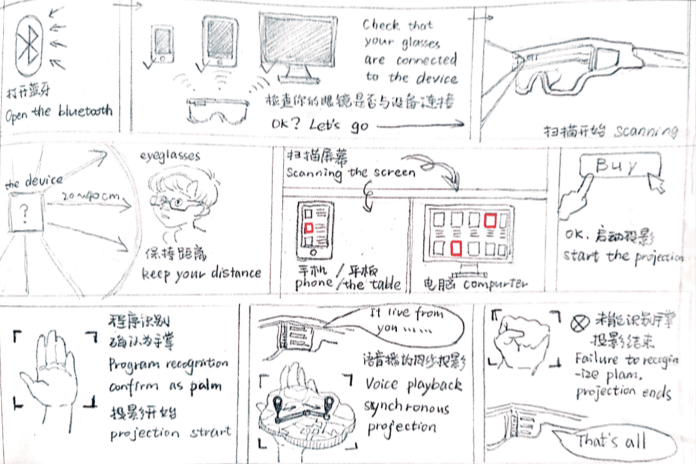 打开蓝牙
Open the bluetooth
Check that
your glasses
are connected
to the device
检查你的眼镜是否与设备连接
OK? Let's go
扫描开始 scanning
the device
?
20~40cm
eyeglasses
保持距离
keep your distance
扫描屏幕
Scanning the screen
手机/平板
phone/the table
电脑 compurter
Buy
OK. 启动投影
start the projection
程序识别
确认为手掌
Program recognition
confirm as palm
投影开始
projection strart
It live from
you ......
语音播放同步投影
Voice playback
synchronous
projection
未能识别手掌
投影结束
Failure to recogin
-ize plam.
projection ends
That's all